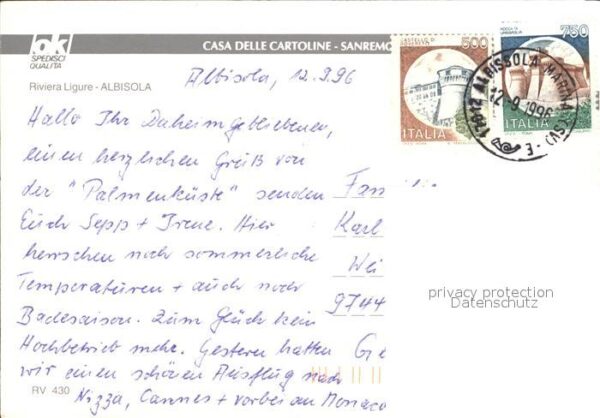 ok
SPEDISCI
QUALITÀ
CASA DELLE CARTOLINE - SANREMO
Riviera Ligure - ALBISOLA
CASTELLO DI
500
ITALIA
ROCCA DI
URBISAGLIA
750
ITALIA
17012 ALBISSOLA MARINA (SV) - E
12-9-1996
Albisola, 12.9.96
Hallo Ihr Daheimgebliebenen,
einen herzlichen Gruß von
der "Palmenküste" senden
Euch Sepp + Irene. Hier
herrschen noch sommerliche
Temperaturen + auch noch
Badesaison. Zum Glück kein
Hochbetrieb mehr. Gestern hatten
wir einen schönen Ausflug nach
Nizza, Cannes + vorbei an Monaco
Fam
Karl
Wei
9744
Ge
RV 430
privacy protection
Datenschutz